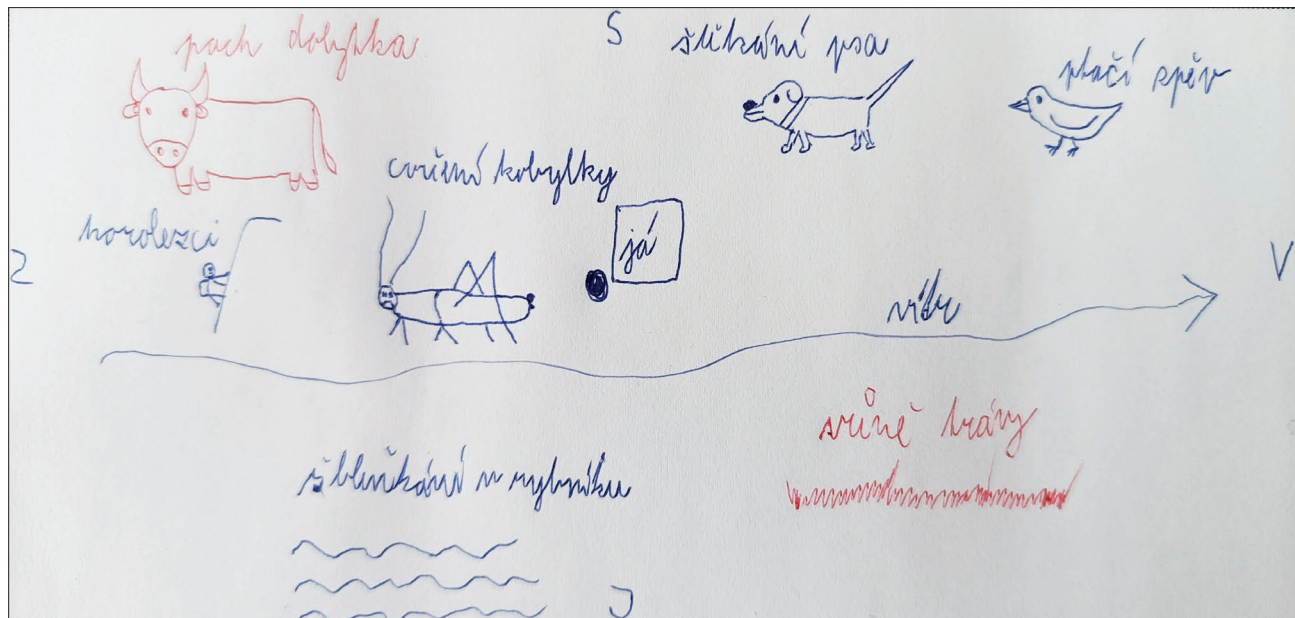 pach dobytka
S
štěkání psa
ptačí zpěv
cvrkání kobylky
horolezci
já
Z
V
vítr
vůně trávy
šblunkání v rybníku
J